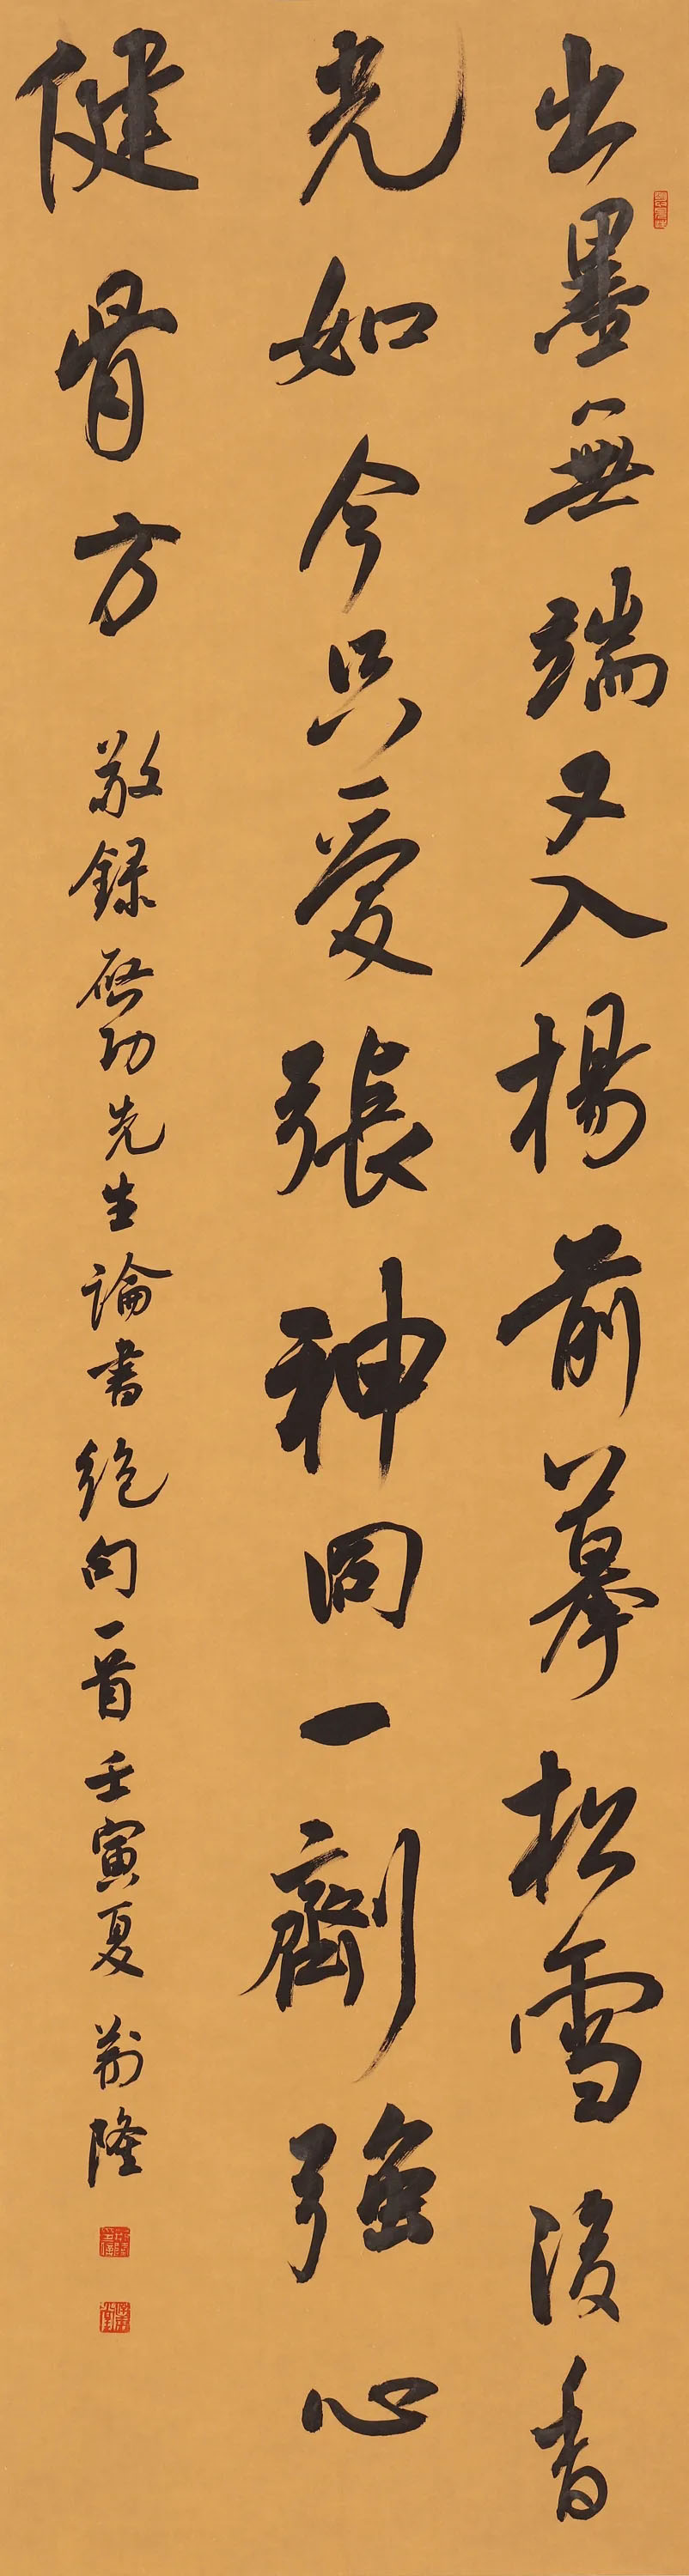 出墨無端又入楊前摹松雪後香
光如今只愛張神冏一劑強心
健骨方
敬録启功先生論書絶句一首壬寅夏荊隆